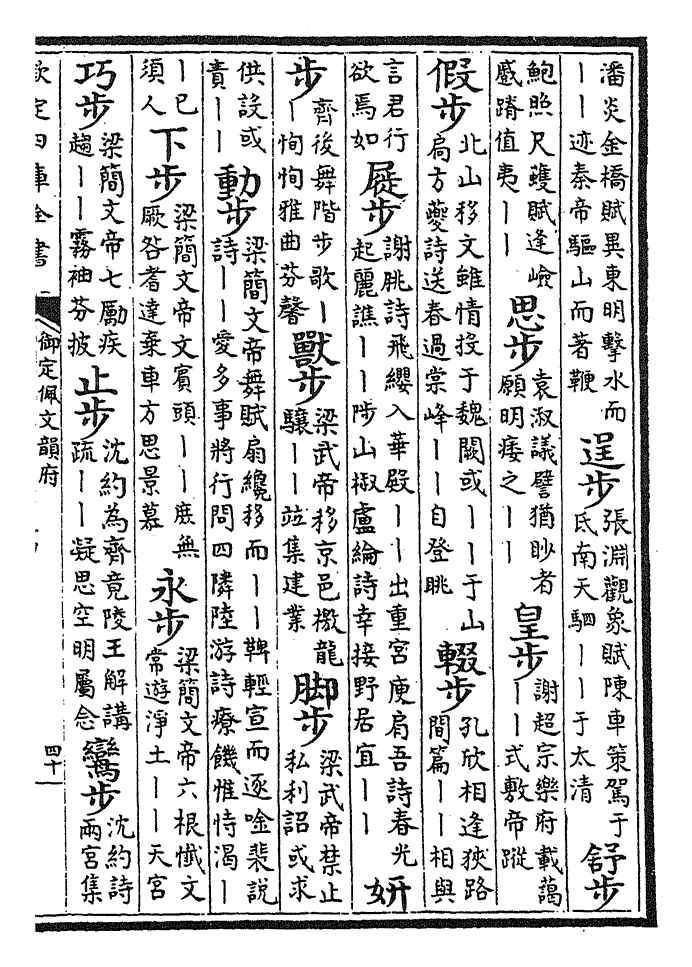 潘炎金橋賦異東明擊水而
丨丨迹秦帝驅山而著鞭
逞步
張淵觀象賦陳車策駕于
氐南天駟丨丨于太清
舒步
鮑照尺蠖賦逢嶮
蹙蹐值夷丨丨
思步
袁淑議譬猶眇者
願明痿之丨丨
皇步
謝超宗樂府載藹
丨丨式敷帝蹤
假步
北山移文雖情投于魏闕或丨丨于山
扃方夔詩送春過棠峰丨丨自登眺
輟步
孔欣相逢狹路
間篇丨丨相與
言君行
欲焉如
屣步
謝朓詩飛纓入華殿丨丨出重宮庾肩吾詩春光
起麗譙丨丨陟山椒盧綸詩幸接野居宜丨丨
妍
步
齊後舞階步歌丨
丨恂恂雅曲芬馨
獸步
梁武帝移京邑檄龍
驤丨丨竝集建業
脚步
梁武帝禁止
私利詔或求
供設或
責丨丨
動步
梁簡文帝舞賦扇纔移而丨丨鞞輕宣而逐唫裴説
詩丨丨愛多事將行問四隣陸游詩療饑惟恃渴丨
丨已
須人
下步
梁簡文帝文賓頭丨丨庶無
厥咎者達棄車方思景慕
永步
梁簡文帝六根懺文
常遊淨土丨丨天宮
巧步
梁簡文帝七勵疾
趨丨丨霧袖芬披
止步
沈約為齊竟陵王解講
疏丨丨凝思空明屬念
鸞步
沈約詩
兩宮集
欽定四庫全書
御定佩文韻府
四十一